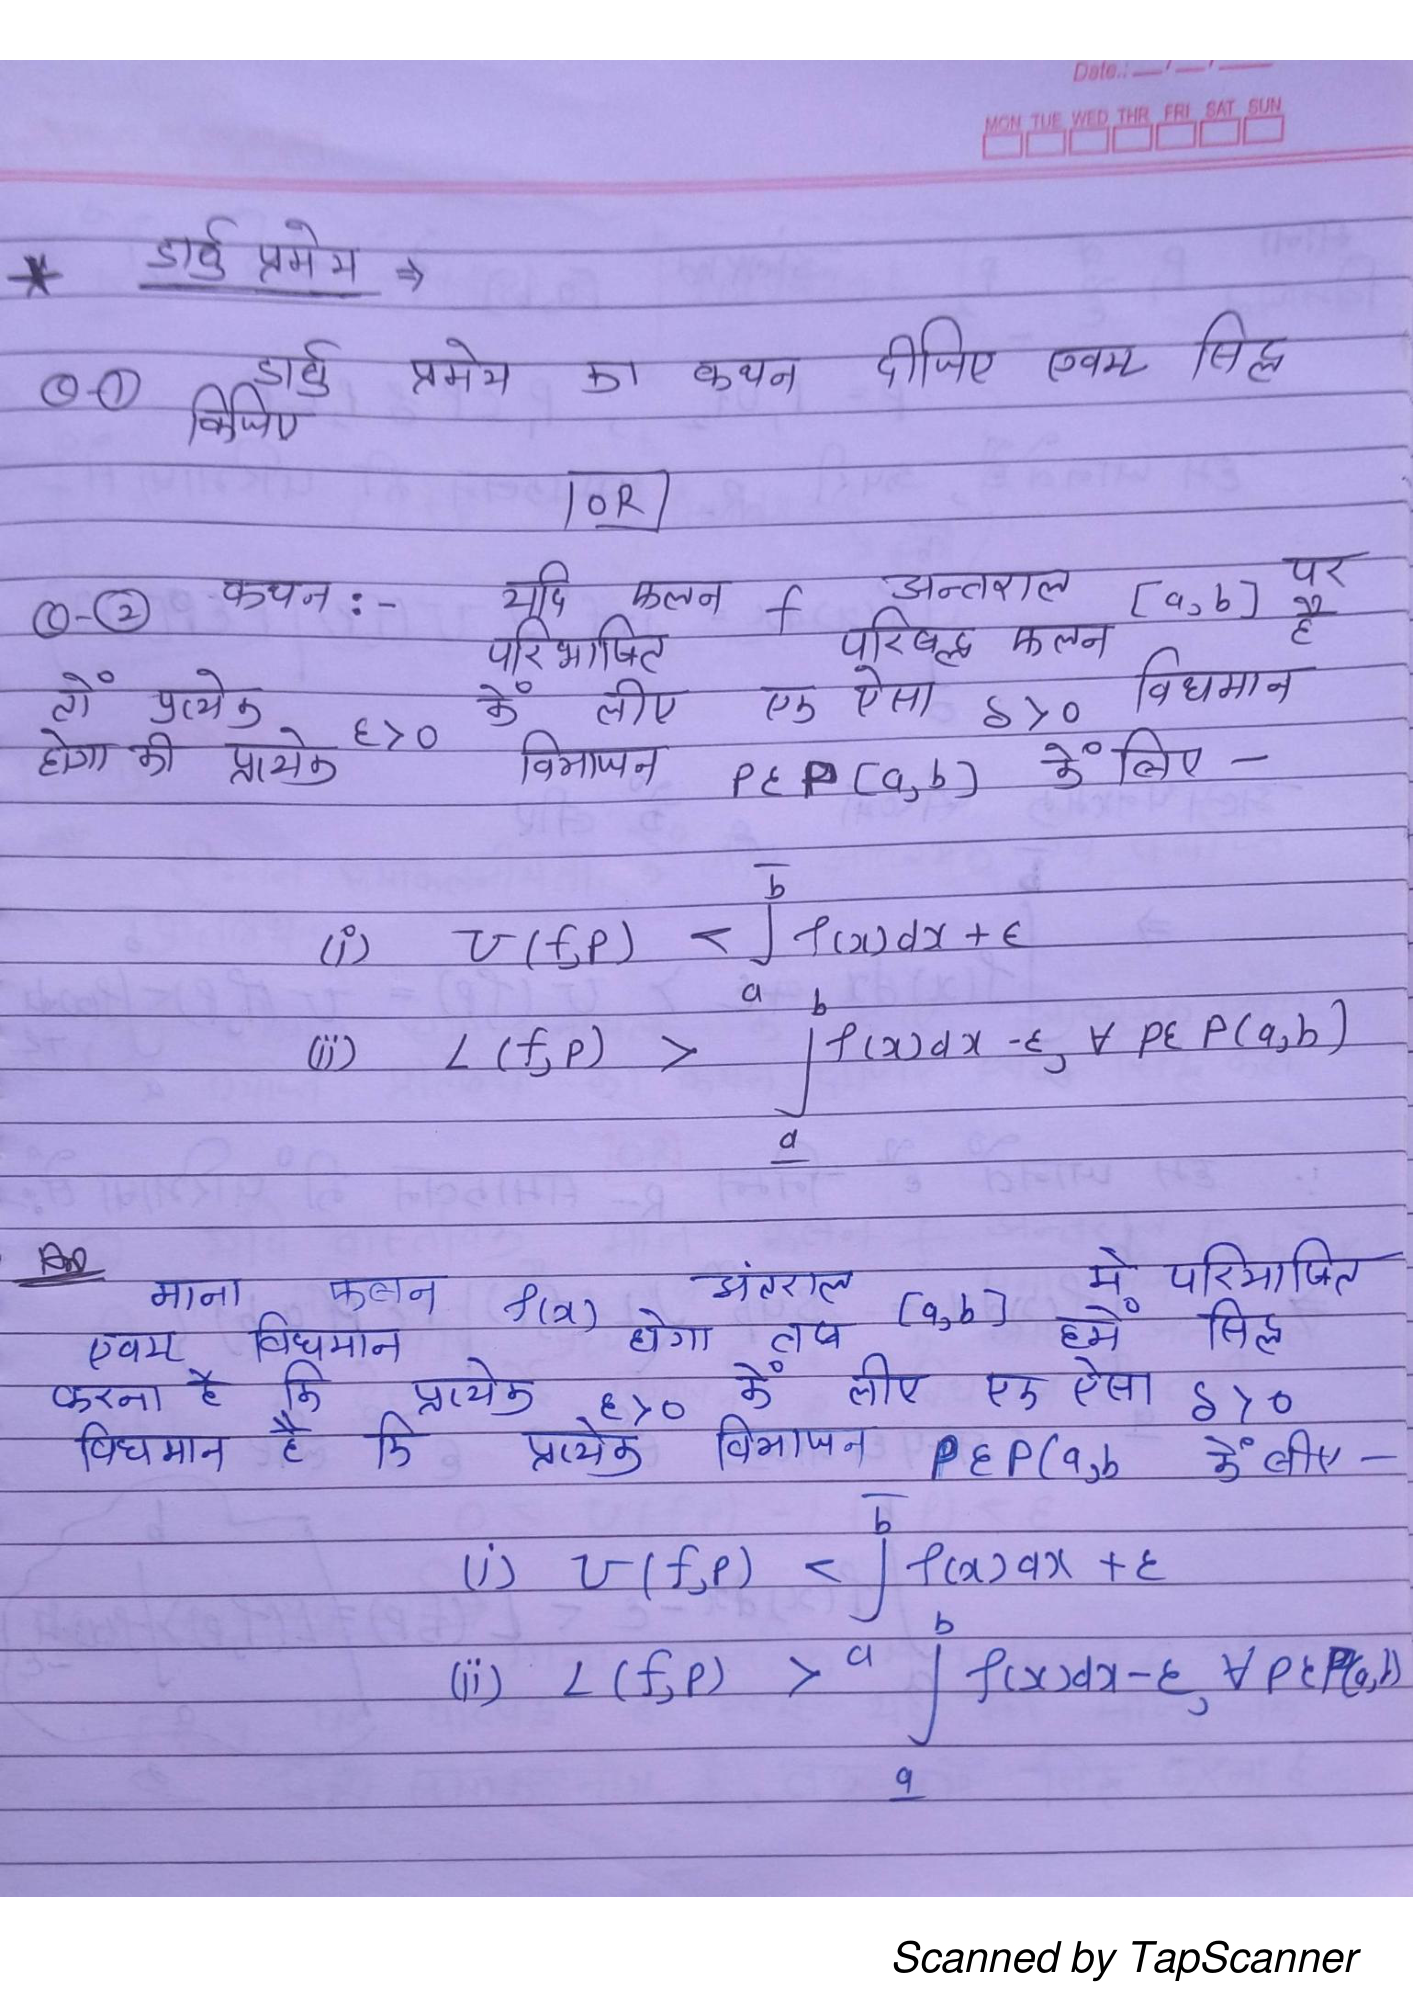 Date.: __/__/__
MON TUE WED THR FRI SAT SUN
* डार्बु प्रमेय ⇒
Q-① डार्बु प्रमेय का कथन दीजिए एवम सिद्ध
किजिए
OR
Q-② कथन :- यदि फलन f अन्तराल [a,b] पर
परिभाषित परिबद्ध फलन है
तों प्रत्येक ε>0 कें लीए एक ऐसा δ>0 विधमान
होगा की प्रत्येक विभाजन PεP[a,b] कें लिए –
(i) U(f,P) < ∫ₐ^b̅ f(x)dx + ε
(ii) L(f,P) > ∫_a̲^b f(x)dx - ε, ∀ PεP(a,b]
माना फलन f(x) अंतराल [a,b] में परिभाषित
एवम विधमान होगा तब हमें सिद्ध
करना है कि प्रत्येक ε>0 कें लीए एक ऐसा δ>0
विधमान है कि प्रत्येक विभाजन PεP(a,b कें लीए –
(i) U(f,P) < ∫ₐ^b̅ f(x)dx + ε
(ii) L(f,P) > ∫_a̲^b f(x)dx - ε, ∀ PεP(a,b)
Scanned by TapScanner